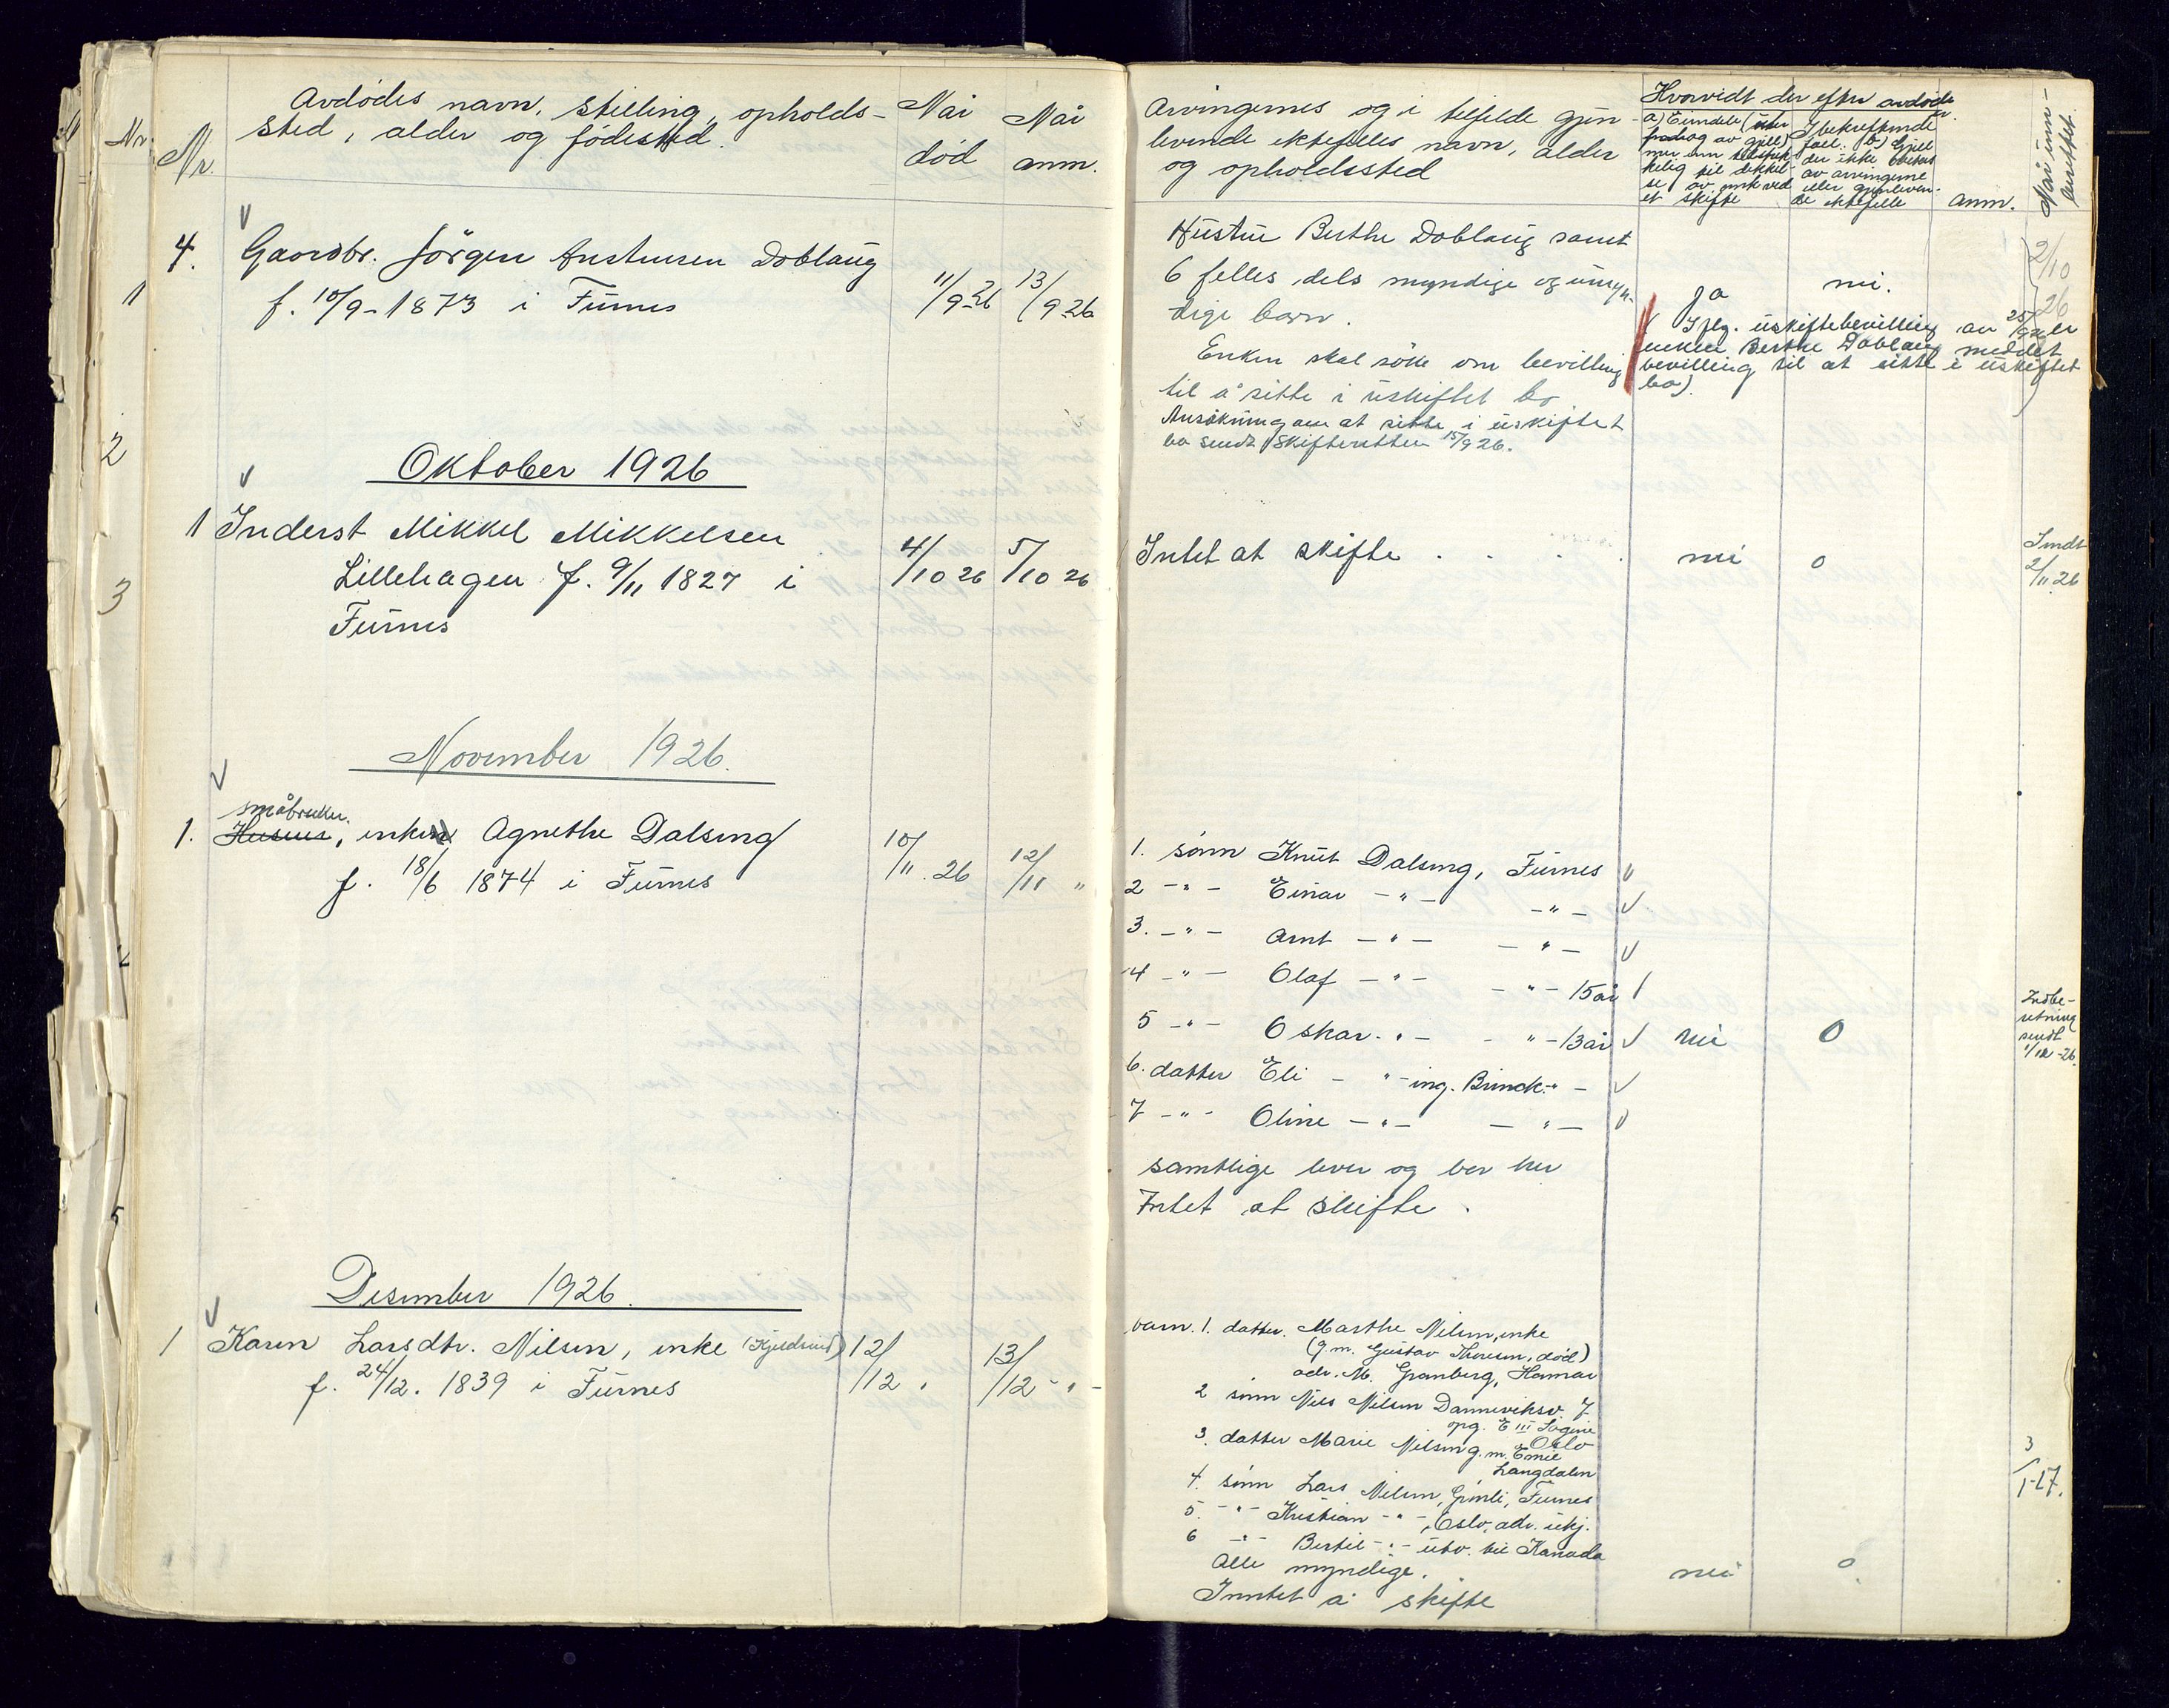 Nr.
Avdödes navn, stilling, opholds-
sted, alder og födested.
Når
död
Når
anm.
4. Gaardbr. Jörgen Doblaug
f. 10/9-1873 i Furnes
11/9-26
13/9 26
Oktober 1926
1 Inderst Mikkel Mikkelsen
Lillehagen f. 9/11 1827 i
Furnes
4/10 26
5/10 26
November 1926.
småbruker.
1. Husm., enke Agnethe Dalseng
f. 18/6 1874 i Furnes
10/11. 26
12/11 "
Desember 1926.
1 Karen Larsdtr. Nilsen, enke (Kjeldsrud)
f. 24/12. 1839 i Furnes
12/12 "
13/12 - " -
Nr.
1
2
3
5
Arvingernes og i tilfelde gjen-
levende ektefelles navn, alder
og opholdssted
Hvorvidt der efter avdöde er
a) Eiendele (etter
fradrag av gjeld)
mer enn tilstrek-
kelig til dekkel-
se av omk ved
et skifte
I bekreftende
fall. b) Gjeld
der ikke
av arvingerne
eller gjenleven-
de ektefelle
anm.
Når inn-
berettet.
Hustru Berthe Doblaug samt
6 felles dels myndige og umyn-
dige barn.
Enken skal söke om bevilling
til å sitte i uskiftet bo
Ansökning om at sitte i uskiftet
bo sendt Skifteretten 15/9 26.
ja
nei.
2/10 26
(Iflg. uskiftebevilling av 25/9 26 er
enken Berthe Doblaug meddelt
bevilling til at sitte i uskiftet
bo).
Intet at skifte . . . .
nei
0
Sendt
2/11 26
1. sönn Knut Dalseng, Furnes
2 - " - Einar - " - - " -
3. - " - Arnt - " - - " -
4 - " - Olaf - " - - " - 15 år
5 - " - Oskar - " - - " - 13 år
6. datter Eli - " - ing. Brinck - " -
7 - " - Oline - " - - " -
samtlige lever og bor her
Intet at skifte.
nei
0
Indbe-
retning
sendt
1/12-26
barn. 1. datter. Marthe Nilsen, enke
(g. m. Gustav Thoresen, död)
adr. M. Granberg, Hamar
2 sönn Nils Nilsen Danneviksv. 7
opg. E III
Oslo
3. datter Marie Nilsen g. m. Emil
Langdalen
4. sönn Lars Nilsen, Grinli, Furnes
5. - " - Kristian - " -, Oslo, adr. ukj.
6 - " - Bertil - " - utv. til Kanada
Alle myndige.
Inntet å skifte
nei
0
3/1-27.